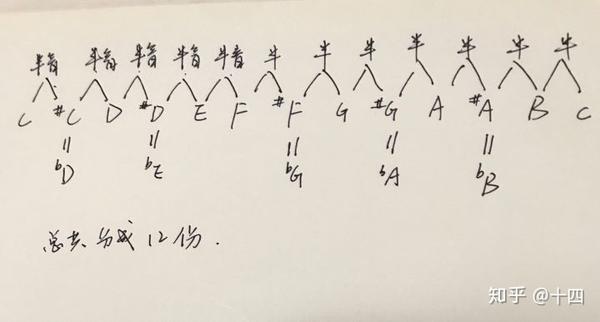 半音 半音 半音 半音 半音 半 半 半 半 半 半 半
C #C D #D E F #F G #G A #A B C
|| || || || ||
bD bE bG bA bB
总共分成12份.
知乎 @十四